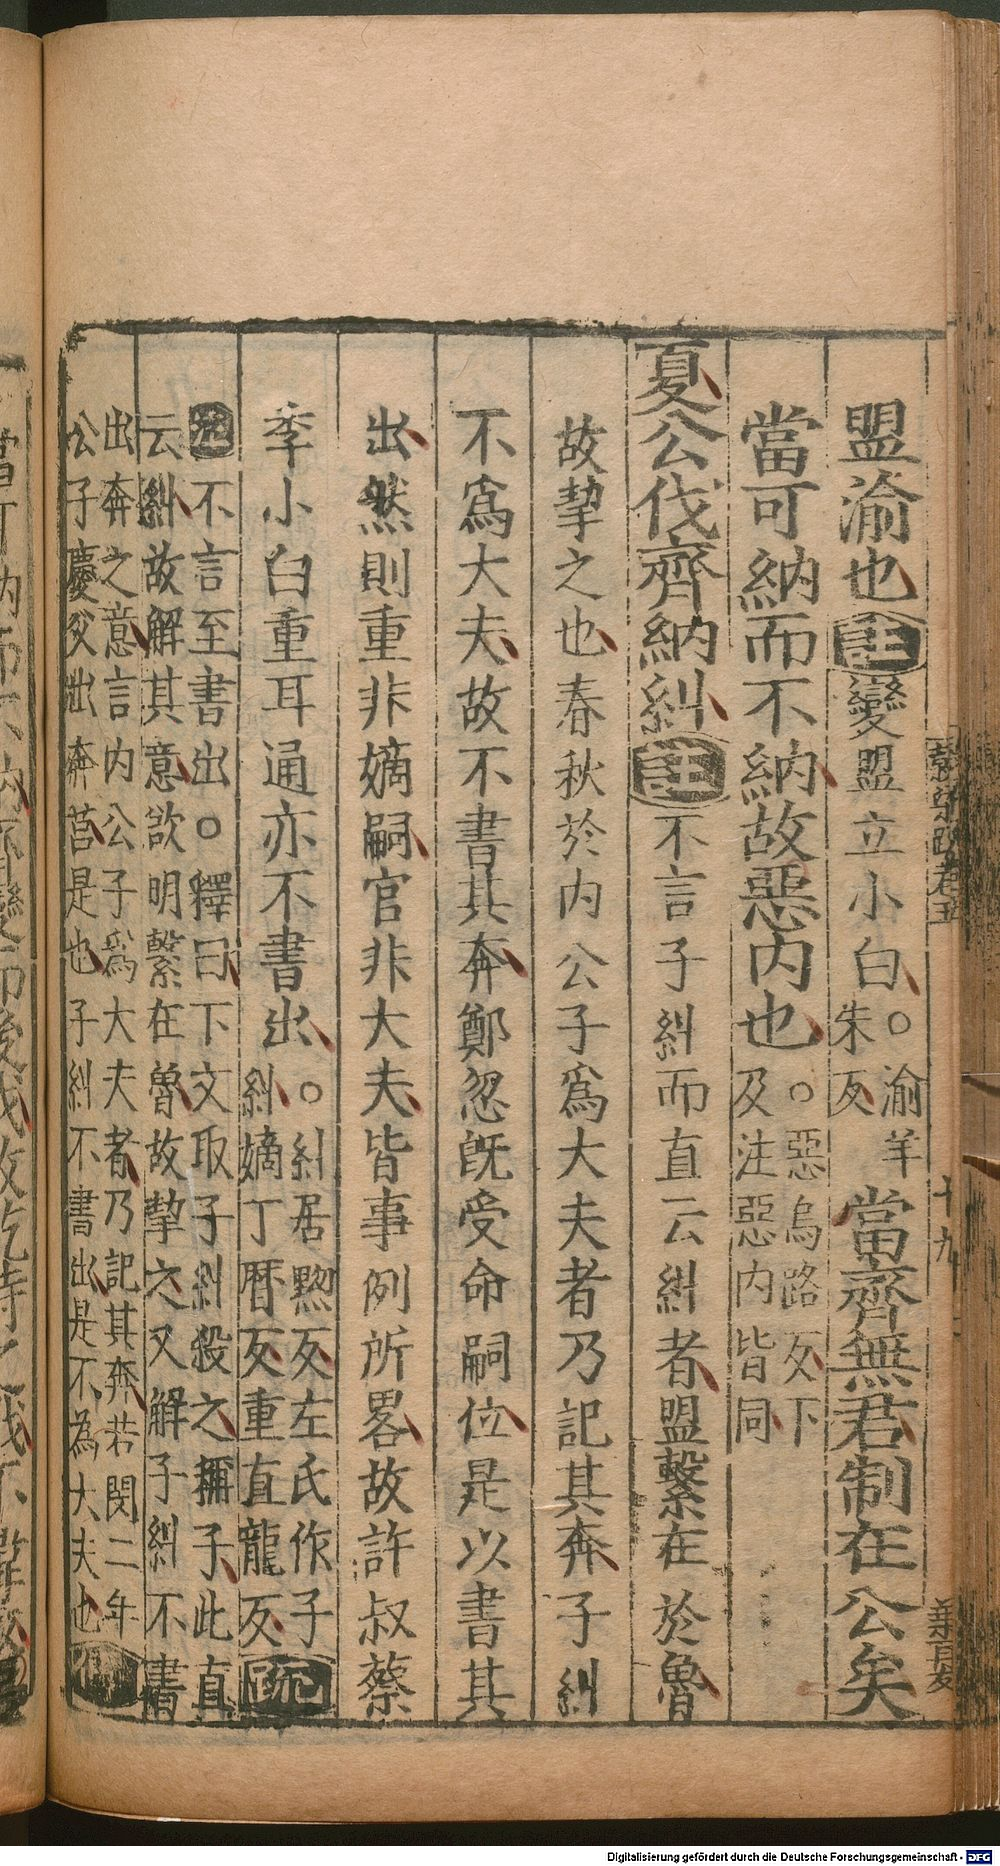 盟渝也注變盟立小白。渝羊朱反當齊無君制在公矣
當可納而不納故惡內也。惡烏路反下及注惡內皆同
夏公伐齊納糾注不言子糾而直云糾者盟繫在於魯
故摯之也春秋於內公子爲大夫者乃記其奔子糾
不爲大夫故不書其奔鄭忽旣受命嗣位是以書其
出然則重非嫡嗣官非大夫皆事例所畧故許叔蔡
季小白重耳通亦不書出。糾居黝反左氏作子糾嫡丁曆反重直龍反疏
不言至書出。釋曰下文取子糾殺之攡子此直
云糾故解其意欲明繫在魯故摯之又解子糾不書
出奔之意言內公子爲大夫者乃記其奔若閔二年
公子慶父出奔莒是也子糾不書出是不為大夫也
穀梁疏卷五
十九
Digitalisierung gefördert durch die Deutsche Forschungsgemeinschaft - DFG